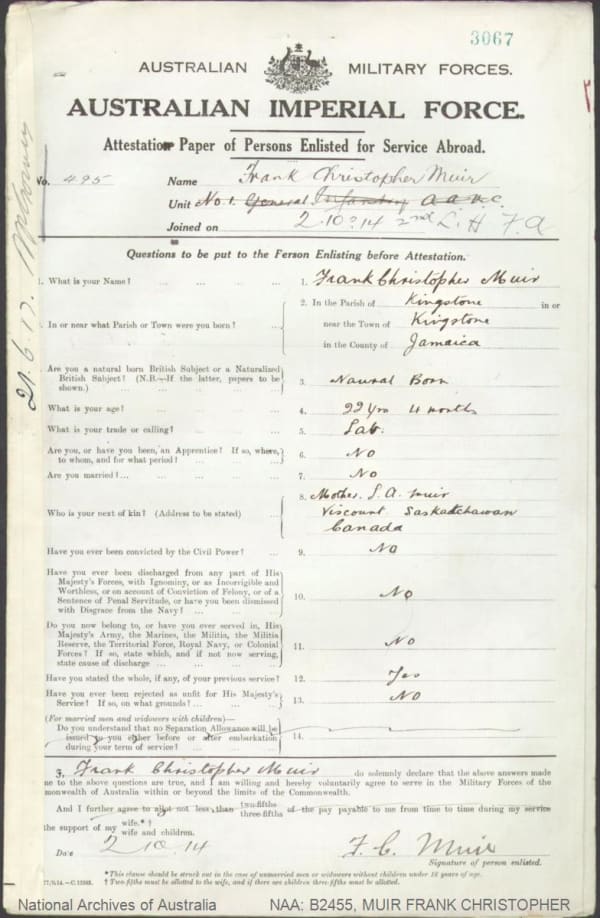 3067
AUSTRALIAN MILITARY FORCES.
AUSTRALIAN IMPERIAL FORCE.
Attestation Paper of Persons Enlisted for Service Abroad.
No. 495 Name Frank Christopher Muir
Unit No 1. General Infantry A.A.V.C.
Joined on 2.10.14 2nd L. H F. A
21.6.17.
Questions to be put to the Person Enlisting before Attestation.
1. What is your Name? ... ... ... 1. Frank Christopher Muir
2. In the Parish of Kingstone in or
In or near what Parish or Town were you born? ... near the Town of Kingstone
in the County of Jamaica
Are you a natural born British Subject or a Naturalized
British Subject? (N.B.—If the latter, papers to be
shown.) ... 3. Naural Born
What is your age? ... 4. 22 Yrs 4 months
What is your trade or calling? ... 5. Lab.
Are you, or have you been, an Apprentice? If so, where,
to whom, and for what period? ... 6. No
Are you married? ... 7. No
8. Mother. S. A. Muir
Who is your next of kin? (Address to be stated) ... Viscount Saskatchawan
Canada
Have you ever been convicted by the Civil Power? ... 9. No
Have you ever been discharged from any part of His
Majesty's Forces, with Ignominy, or as Incorrigible and
Worthless, or on account of Conviction of Felony, or of a
Sentence of Penal Servitude, or have you been dismissed
with Disgrace from the Navy? ... 10. No
Do you now belong to, or have you ever served in, His
Majesty's Army, the Marines, the Militia, the Militia
Reserve, the Territorial Force, Royal Navy, or Colonial
Forces? If so, state which, and if not now serving,
state cause of discharge ... 11. No
Have you stated the whole, if any, of your previous service? 12. Yes
Have you ever been rejected as unfit for His Majesty's
Service? If so, on what grounds? ... 13. No
(For married men and widowers with children)—
Do you understand that no Separation Allowance will be
issued to you either before or after embarkation
during your term of service? 14.
I, Frank Christopher Muir do solemnly declare that the above answers made
me to the above questions are true, and I am willing and hereby voluntarily agree to serve in the Military Forces of the
monwealth of Australia within or beyond the limits of the Commonwealth.
And I further agree to allot not less than two-fifths three-fifths of the pay payable to me from time to time during my service
the support of my wife.*† wife and children.
Date 2 10. 14 F. C. Muir
Signature of person enlisted.
*This clause should be struck out in the case of unmarried men or widowers without children under 18 years of age.
† Two-fifths must be allotted to the wife, and if there are children three-fifths must be allotted.
National Archives of Australia NAA: B2455, MUIR FRANK CHRISTOPHER